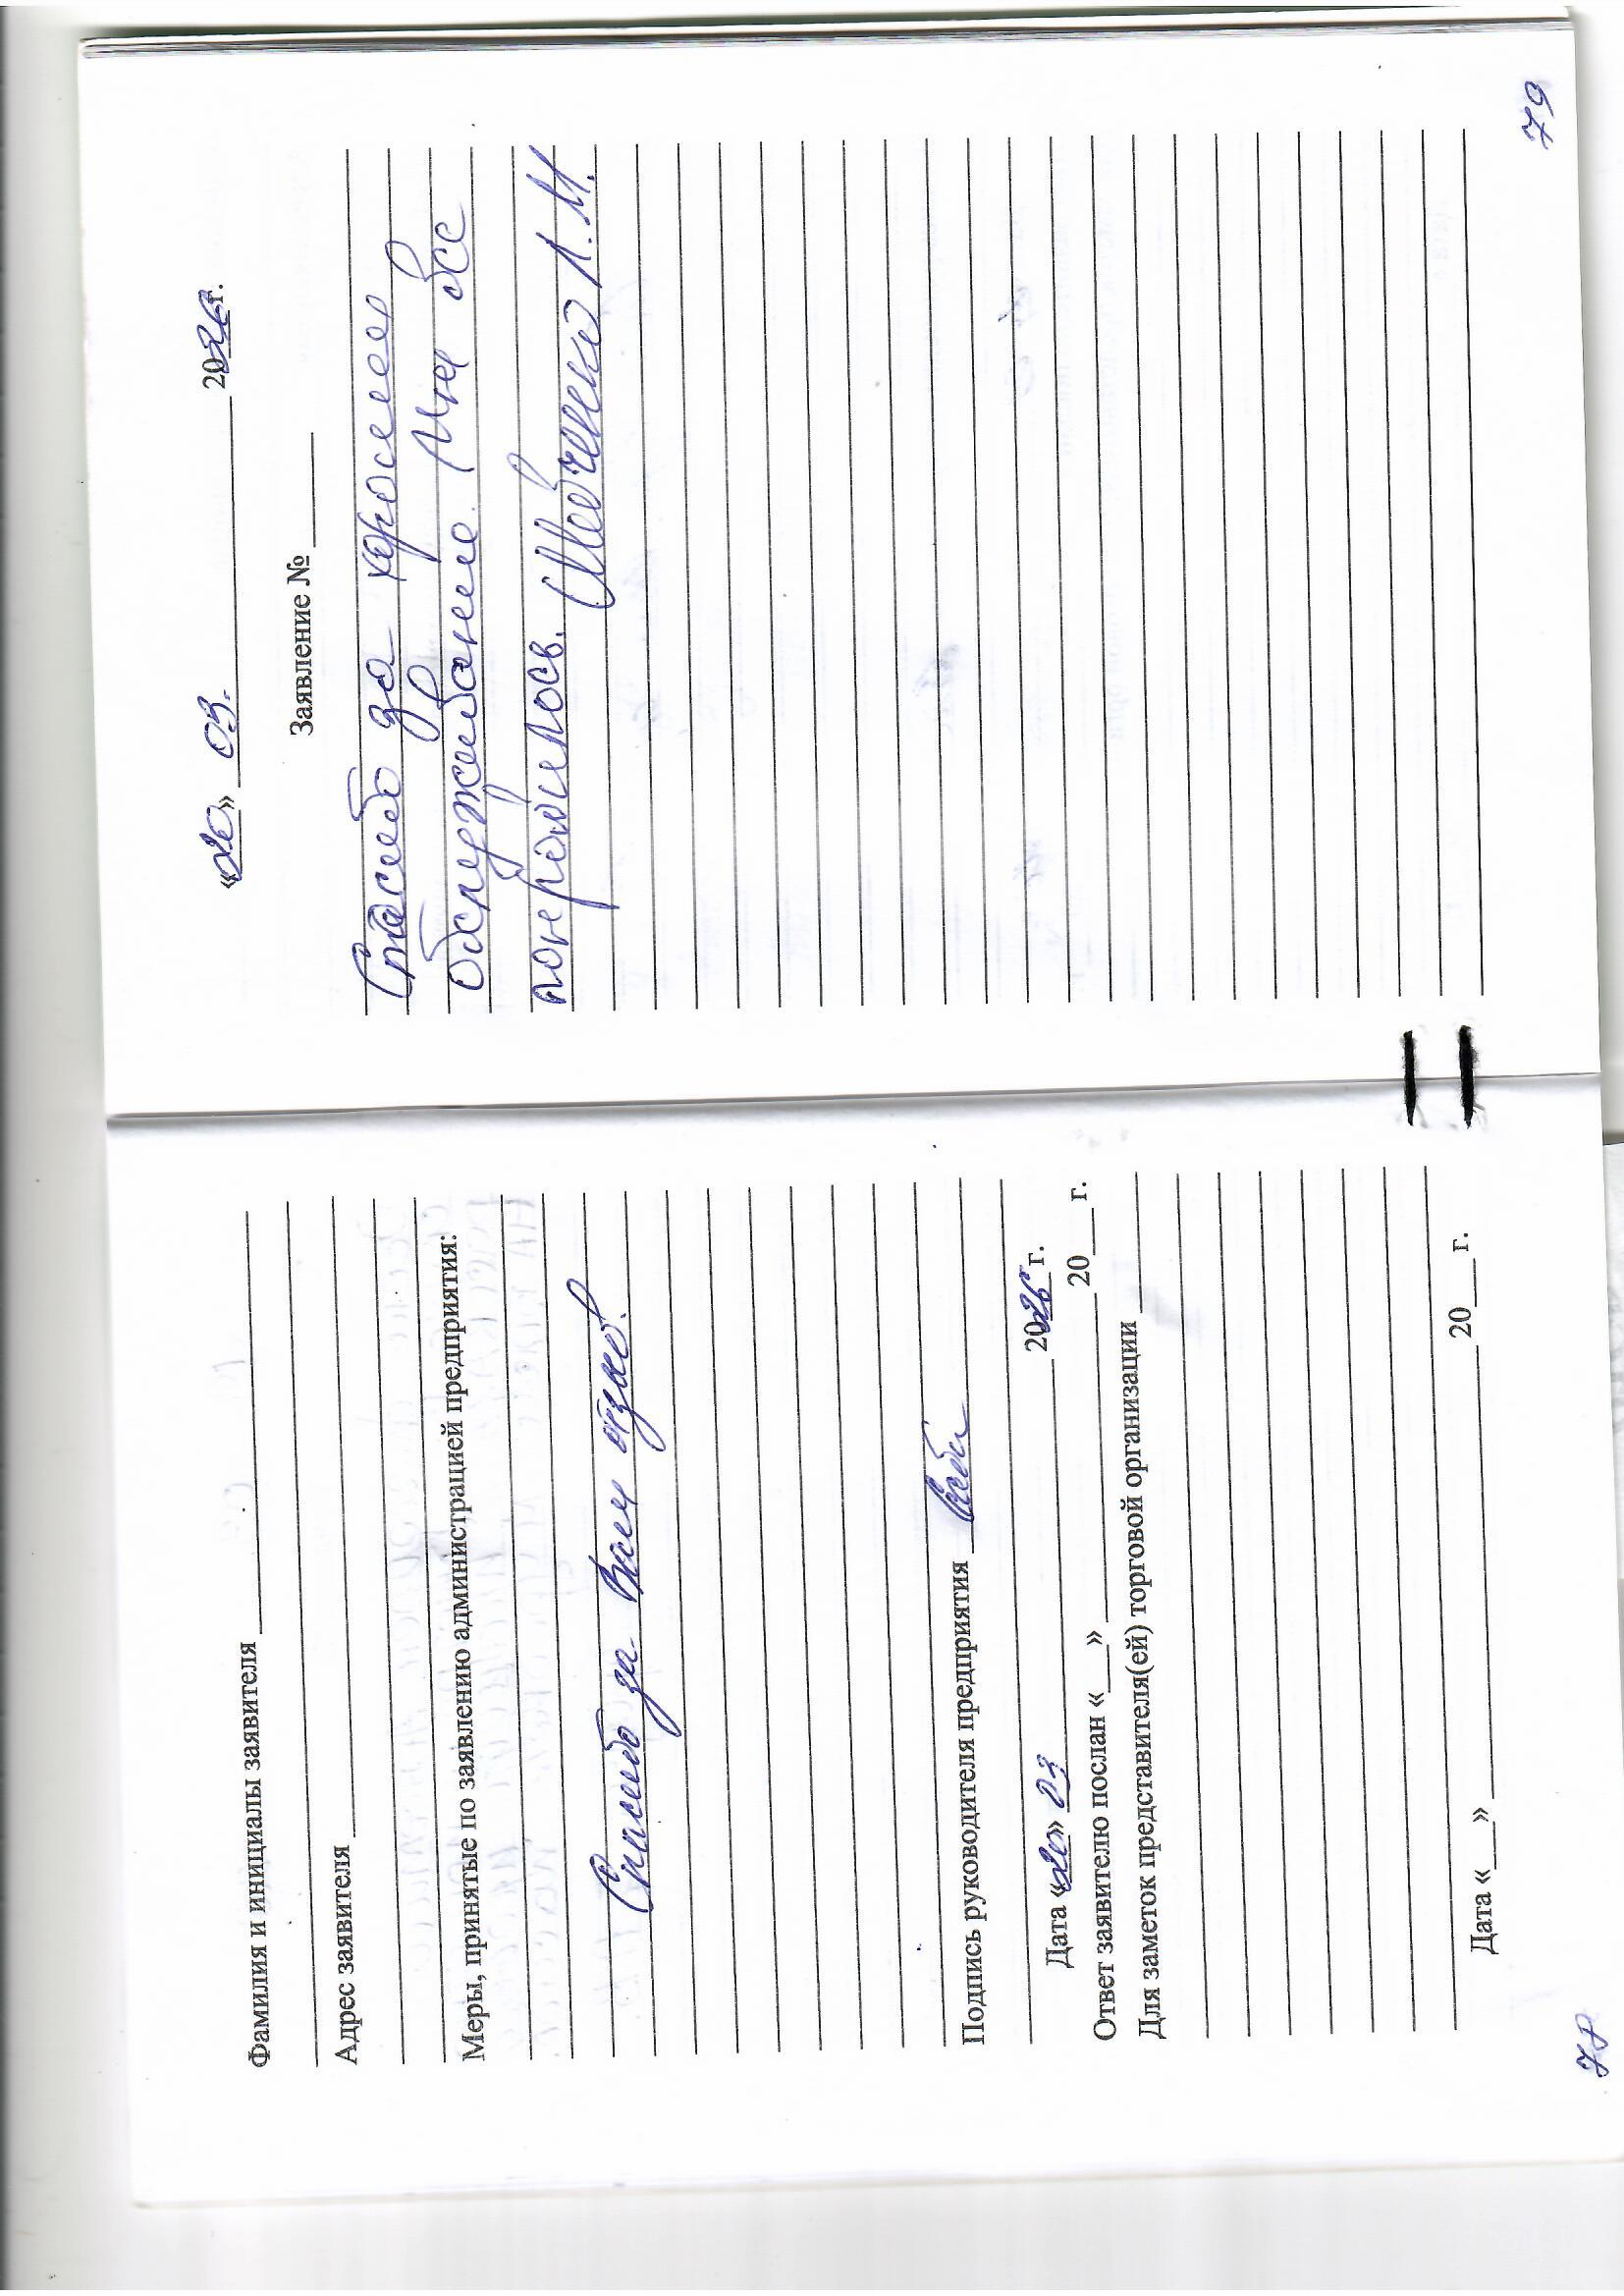 Фамилия и инициалы заявителя
Адрес заявителя
Меры, принятые по заявлению администрацией предприятия:
Спасибо за Ваш отзыв.
Подпись руководителя предприятия
Дата «20» 03 2026 г.
Ответ заявителю послан «__» ____ 20__ г.
Для заметок представителя(ей) торговой организации
Дата «__» ____ 20__ г.
78
«20» 03. 2026г.
Заявление №
Спасибо за хорошее
обслуживание. Мне все
понравилось. Шевченко Л.М.
79